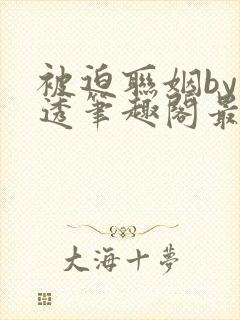 被迫联姻by
透笔趣阁最
大海十梦